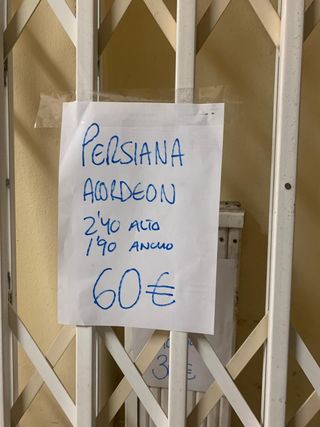 PERSIANA
ACORDEON
2'40 ALTO
1'90 ANCHO
60€